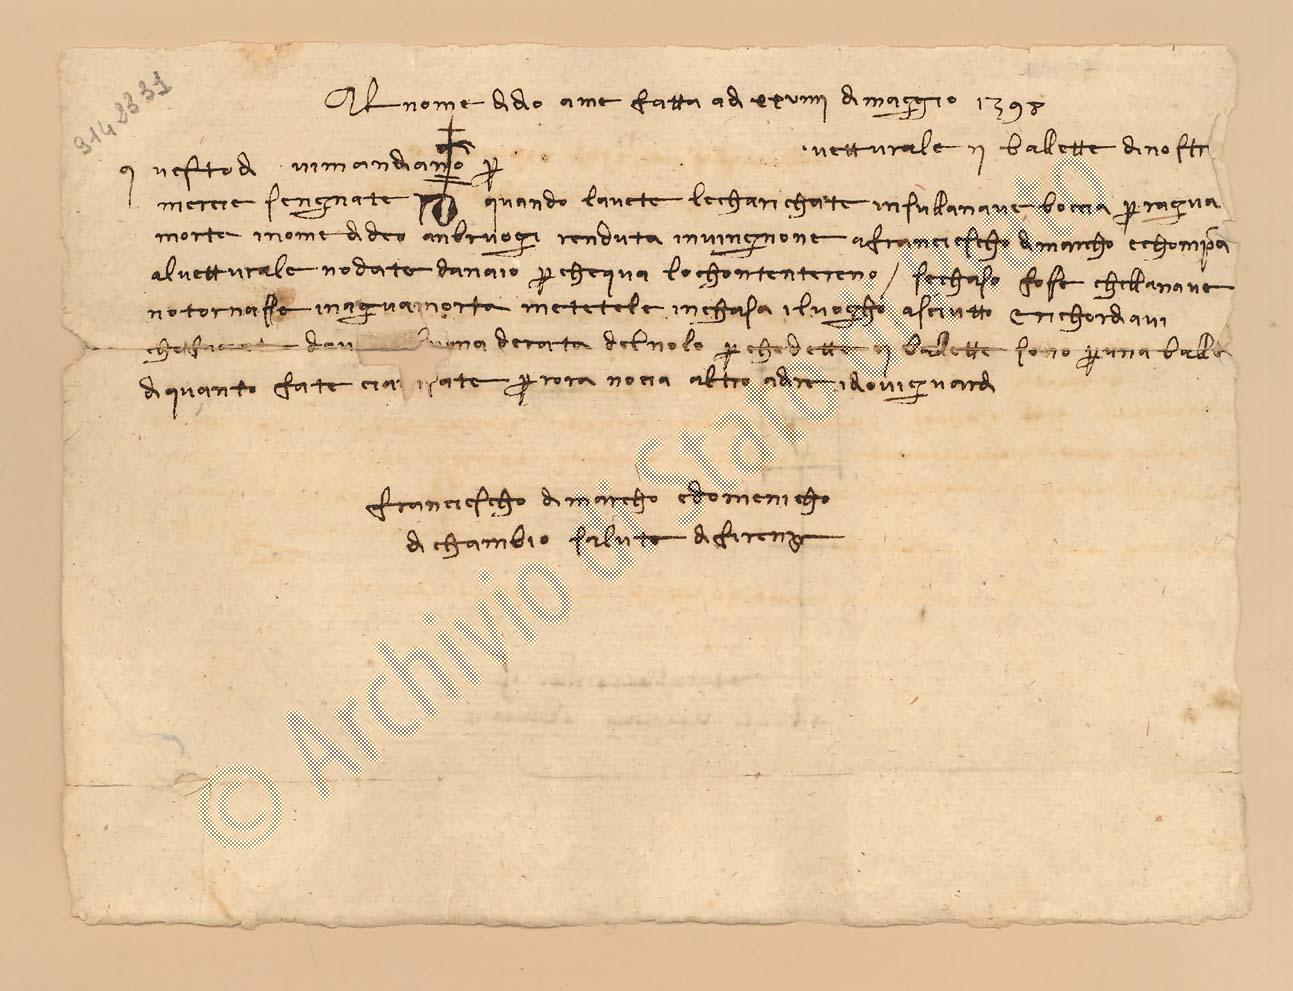 9142331
Al nome di dio ame fatta a dì xxviiii di maggio 1398
questo dì vi mandiamo per vetturale ii ballette di nostre
mercie sengnate quando l'avete le charichate in sulla nave boccia per aqua
morta i nome di deo anbruogi renduta in vingnone a franciescho di marcho e chonpa
al vetturale no date danaio per che qua lo chontenteremo / se chaso fosse che lla nave
no tornasse in aguamorta metetele in chasa i luogho asciutto e richordavi
una derata del nolo per che dette ii ballette sono per una balla
di quanto fate ci per vostra nocia altro a dire idio vi guardi
francieschο di marcho e domenicho
di chambio salute di firenze
© Archivio di Stato di Prato